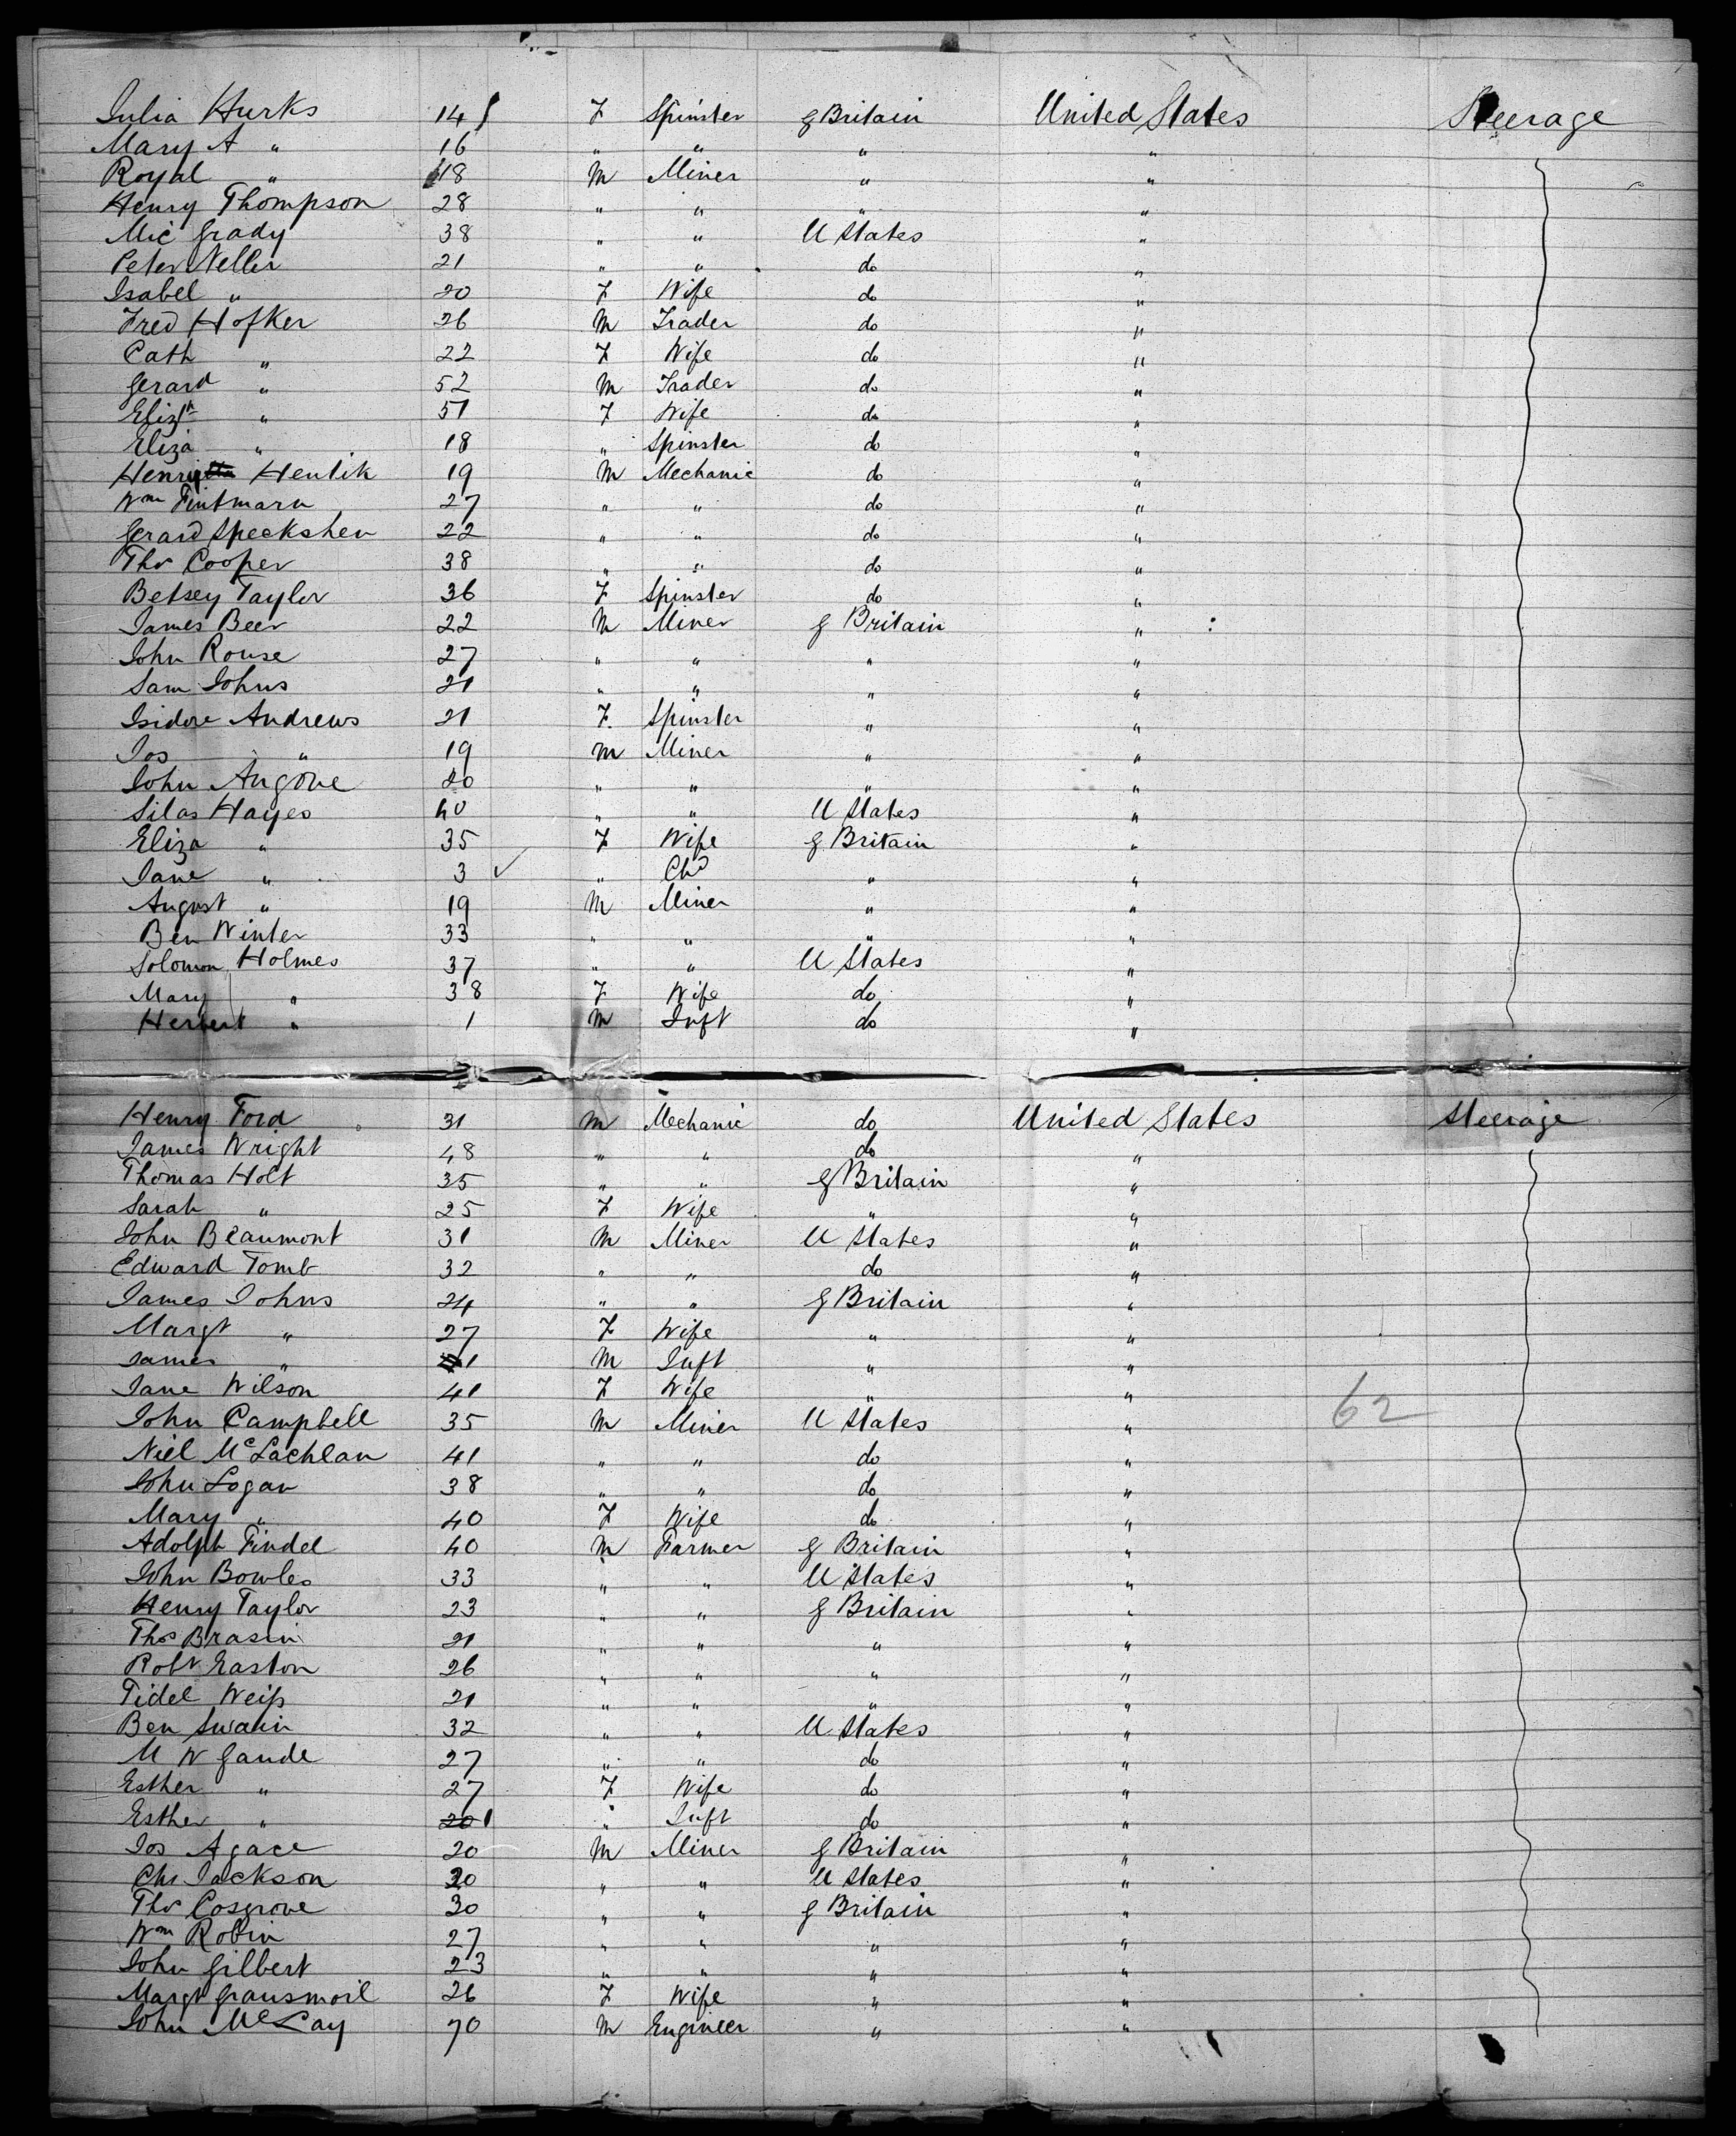 Julia Hurks 14 F Spinster G Britain United States Steerage
Mary A " 16 " " " "
Royal " 18 M Miner " "
Henry Thompson 28 " " " "
Mic Grady 38 " " U States "
Peter Neller 21 " " do "
Isabel " 20 F Wife do "
Fred Hofker 26 M Trader do "
Cath " 22 F Wife do "
Gerard " 52 M Trader do "
Elizth " 51 F Wife do "
Eliza " 18 " Spinster do "
Henri Hentik 19 M Mechanic do "
Wm Fintmarn 27 " " do "
Gerard Speckshen 22 " " do "
Thos Cooper 38 " " do "
Betsey Taylor 36 F Spinster do "
James Beer 22 M Miner G Britain "
John Rouse 27 " " " "
Sam Johns 21 " " " "
Isidore Andrews 21 F Spinster " "
Jos " 19 M Miner " "
John Angove 20 " " " "
Silas Hayes 40 " " U States "
Eliza " 35 F Wife G Britain "
Jane " 3 ✓ " Chd " "
August " 19 M Miner " "
Ben Winter 33 " " " "
Solomon Holmes 37 " " U States "
Mary " 38 F Wife do "
Herbert " 1 M Inft do "
Henry Ford 31 M Mechanic do United States Steerage
James Wright 48 " " do "
Thomas Holt 35 " " G Britain "
Sarah " 25 F Wife " "
John Beaumont 31 M Miner U States "
Edward Tomb 32 " " do "
James Johns 24 " " G Britain "
Margt " 27 F Wife " "
James " 1 M Inft " "
Jane Wilson 41 F Wife " "
John Campbell 35 M Miner U States " 62
Niel McLachlan 41 " " do "
John Logan 38 " " do "
Mary " 40 F Wife do "
Adolph Findel 40 M Farmer G Britain "
John Bowles 33 " " U States "
Henry Taylor 23 " " G Britain "
Thos Brasin 21 " " " "
Robt Easton 26 " " " "
Fidel Weiß 21 " " " "
Ben Swain 32 " " U States "
M W Gande 27 " " do "
Esther " 27 F Wife do "
Esther " 20 1 " Inft do "
Jos Agace 20 M Miner G Britain "
Chs Jackson 30 " " U States "
Thos Cosgrove 30 " " G Britain "
Wm Robin 27 " " " "
John Gilbert 23 " " " "
Margt Gransmoil 26 F Wife " "
John McLay 70 M Engineer " "